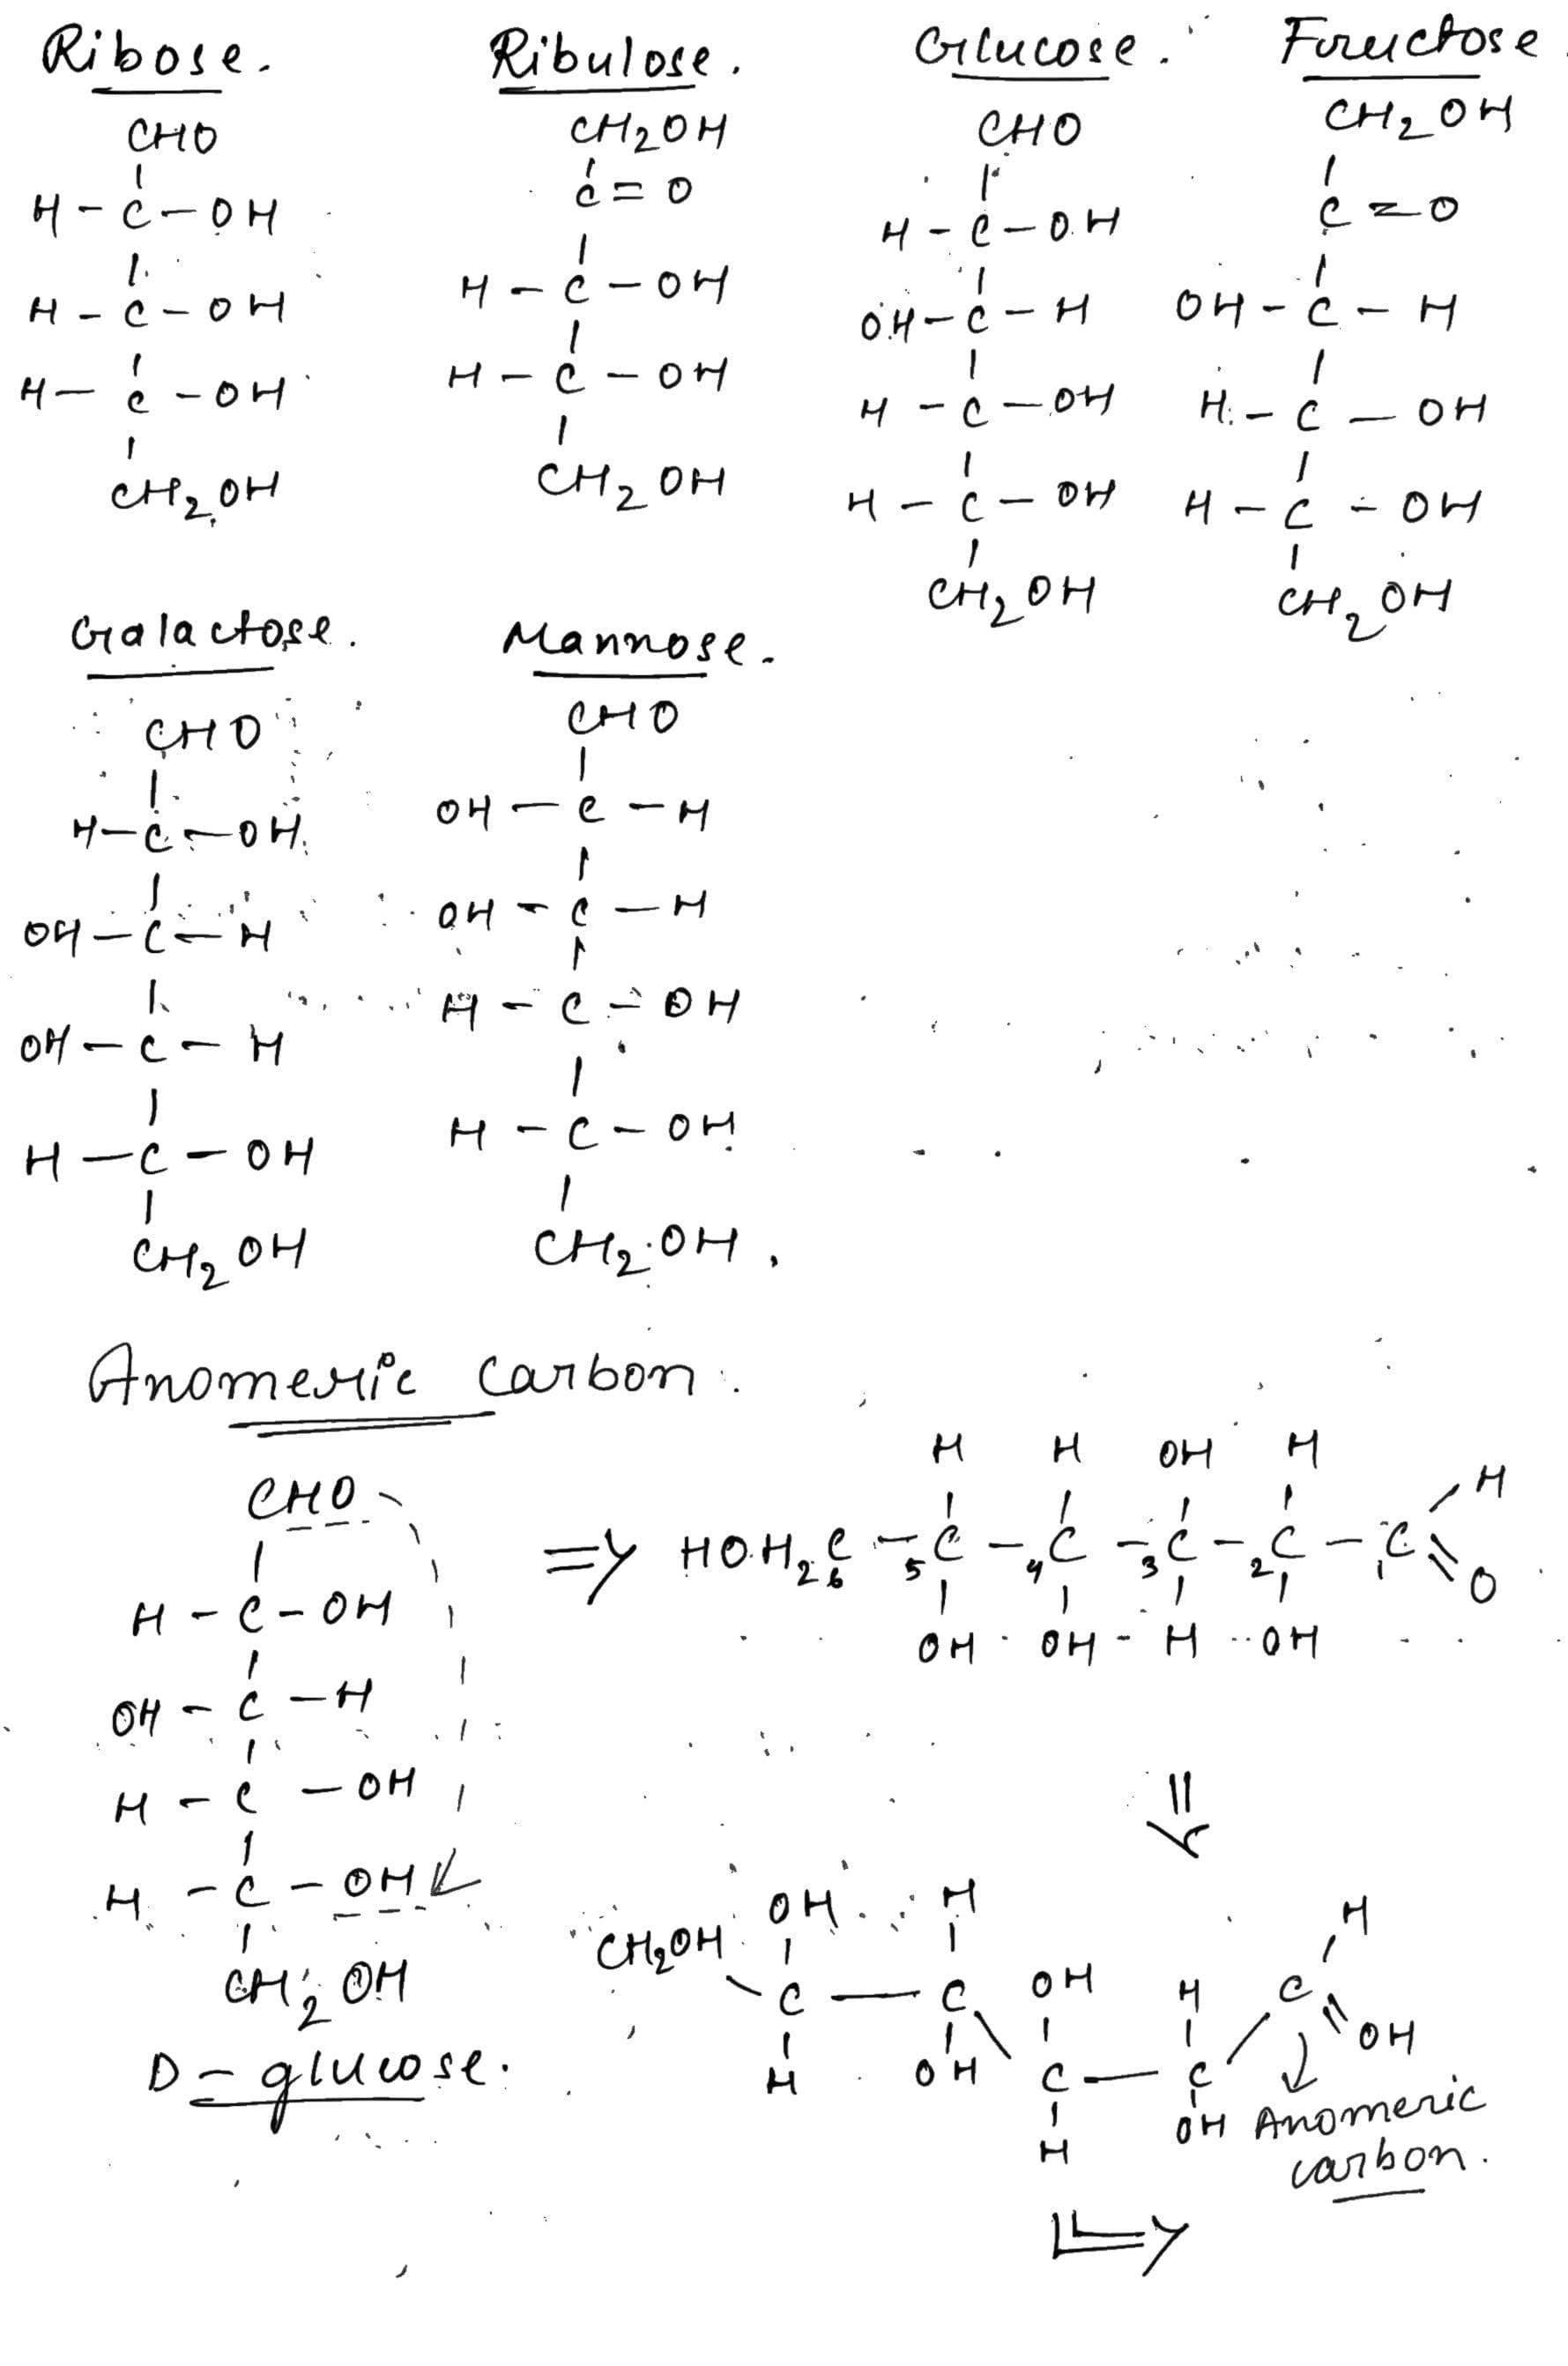 Ribose.
CHO
H - C - OH
H - C - OH
H - C - OH
CH2OH
Ribulose.
CH2OH
C = O
H - C - OH
H - C - OH
CH2OH
Glucose.
CHO
H - C - OH
OH - C - H
H - C - OH
H - C - OH
CH2OH
Fructose
CH2OH
C = O
OH - C - H
H - C - OH
H - C - OH
CH2OH
Galactose.
CHO
H - C - OH
OH - C - H
OH - C - H
H - C - OH
CH2OH
Mannose.
CHO
OH - C - H
OH - C - H
H - C - OH
H - C - OH
CH2OH.
Anomeric carbon.
CHO
H - C - OH
OH - C - H
H - C - OH
H - C - OH
CH2OH
D - glucose.
H H OH H H
=> HOH2C - C - C - C - C - C = O
6 5 4 3 2 1
OH OH H OH
OH H H
CH2OH C - C OH H C = OH
H OH C - C
H OH
Anomeric
carbon.